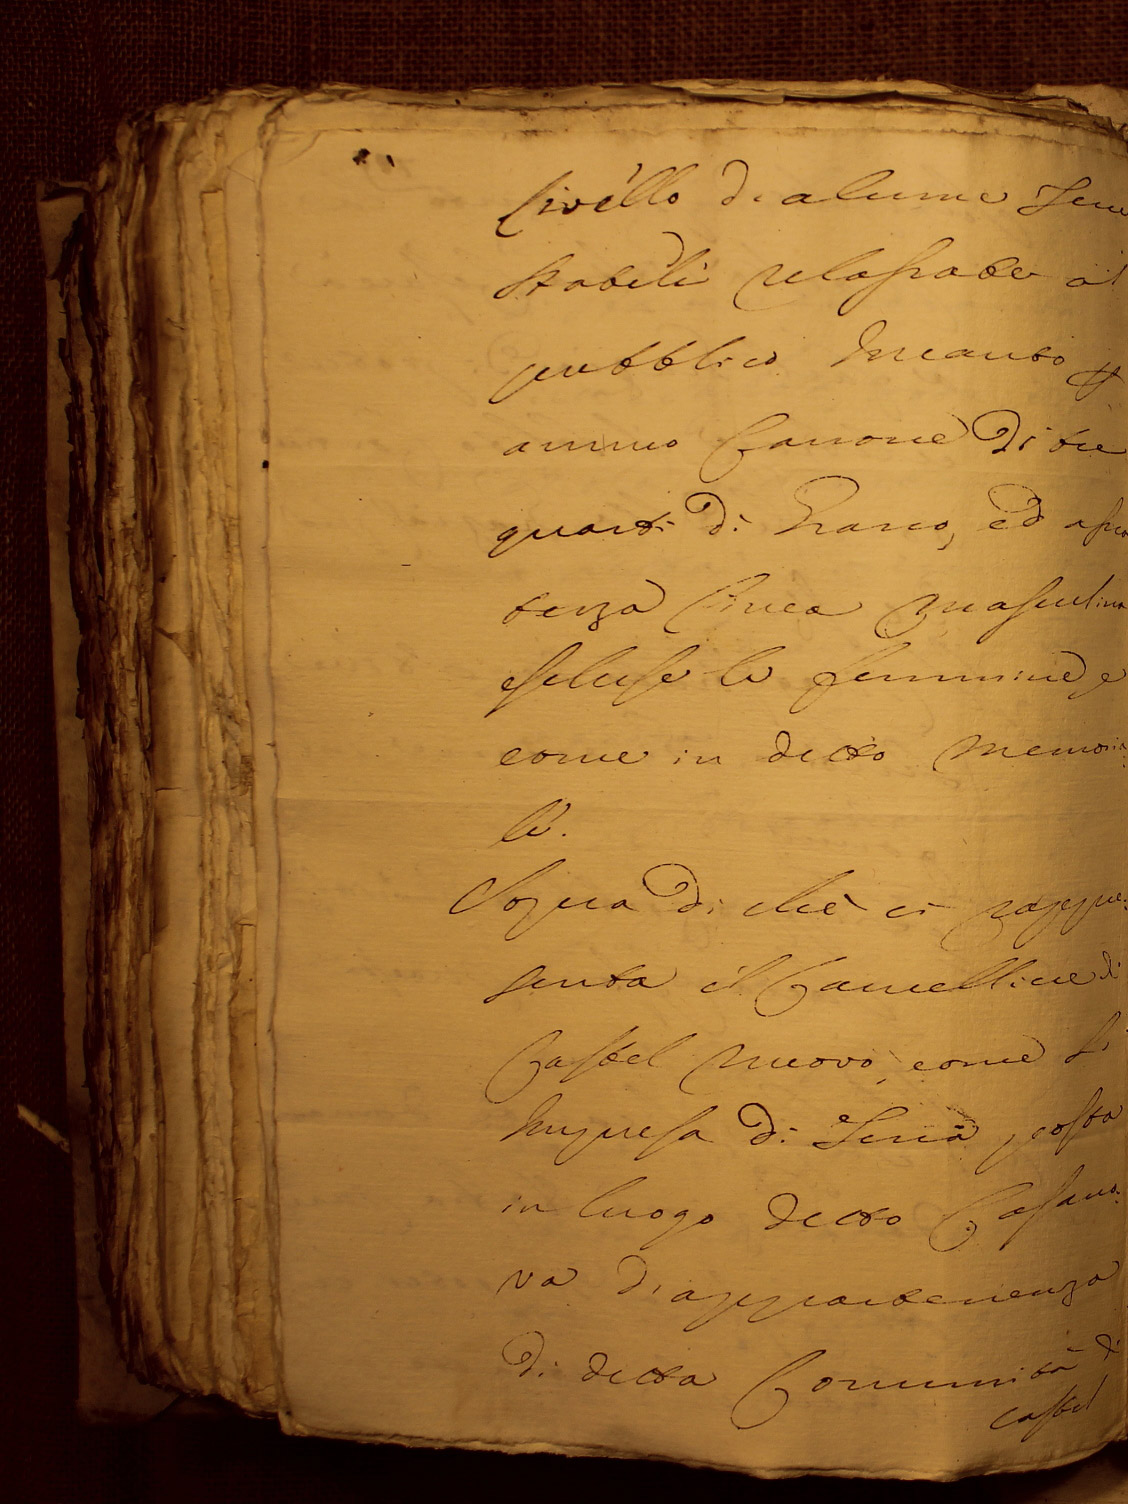 Livello di alcune Terre
stabili rilasciate al
pubblico Incanto p
annuo Canone di tre
quarti di Grano, ed a
terza linea mascolina
escluse le femmine, e
come in detto Memoria
le.
Sopra di che ci rappre:
senta il Cancelliere di
Castel nuovo, come si
Impresa di Terra, posta
in luogo detto Casano:
va di appartenenza
di detta Comunità di
Castel